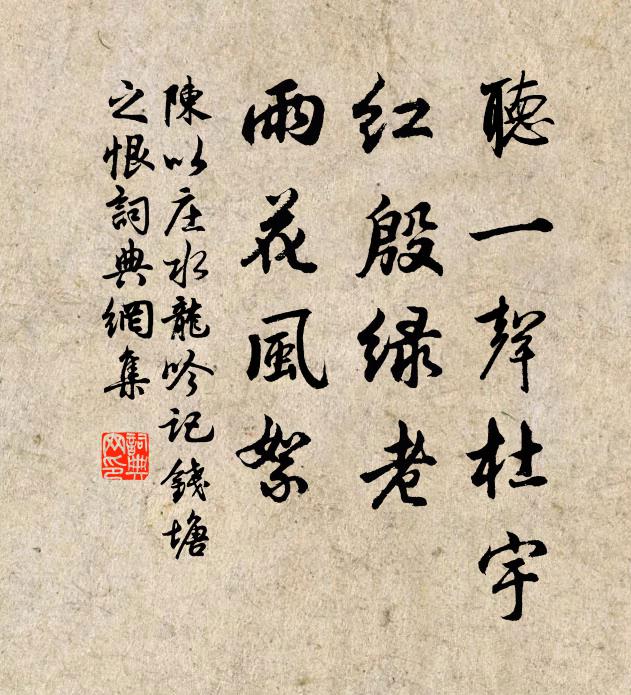 聽一聲杜宇
红殷绿老
雨花風絮
陳以庄水龍吟记錢塘
之恨詞典網集
詞典
网印